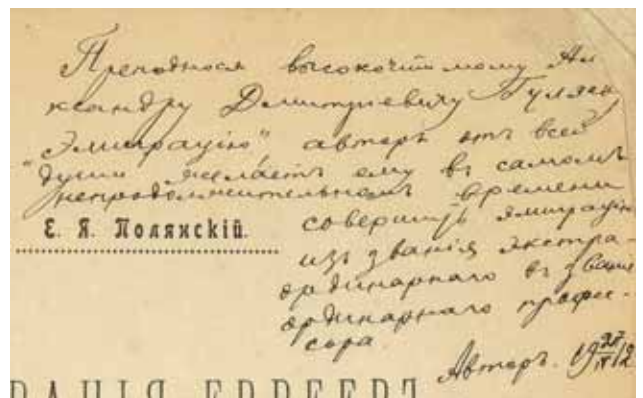 Преподнося высокочтимому Але
ксандру Дмитріевичу Гуляев
"Эмиграцію" авторъ отъ всей
души желаетъ ему въ самомъ
непродолжительномъ времени
совершить эмиграцію
изъ званія экстра-
ординарнаго въ званіе
ординарнаго профес-
сора.
Авторъ. 19 27/IV 12
Е. Я. Полянскій.
РАЦІЯ ЕВРЕЕВЪ